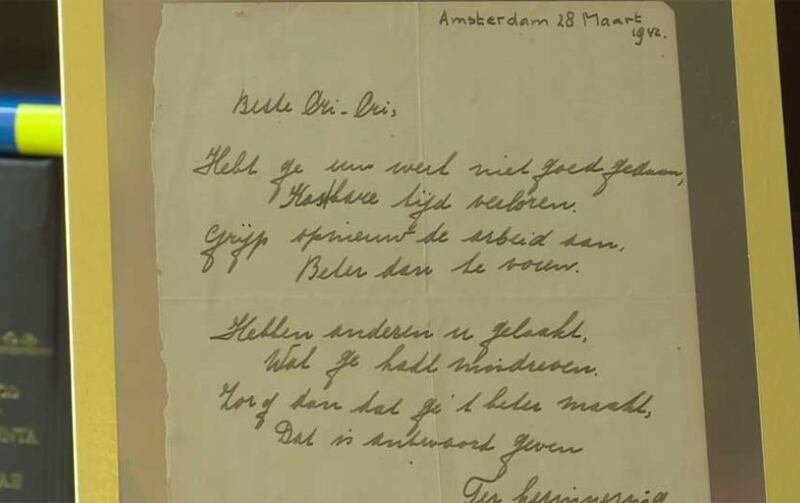 Amsterdam 28 Maart
1942.
Beste Cri-Cri,
Hebt ge uw werk niet goed gedaan,
Kostbare tijd verloren.
Grijp opnieuw de arbeid aan,
Beter dan te voren.
Hebben anderen u gelaakt,
Wat ge hadt misdreven.
Zorg dan dat gij 't beter maakt,
Dat is antwoord geven
Ter herinnering